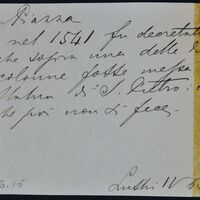 Piazza
nel 1541 fu decretato
che sopra una delle d
colonne fosse messa
statua di S. Pietro:
che poi non si fece.
15